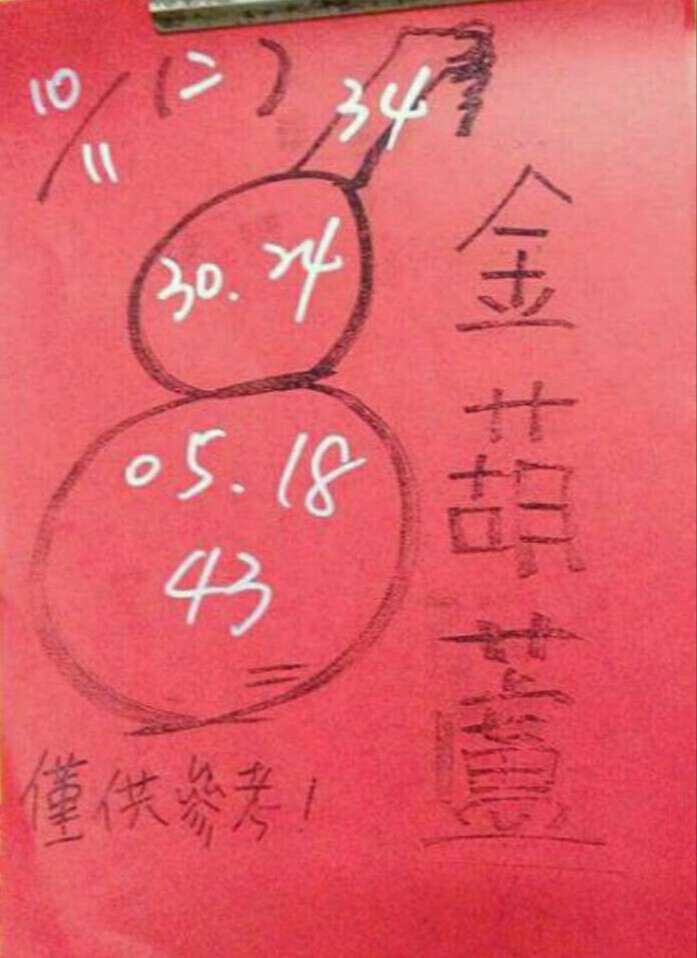 10/11 (二)
34
30. 24
05. 18
43
金葫蘆
僅供參考!